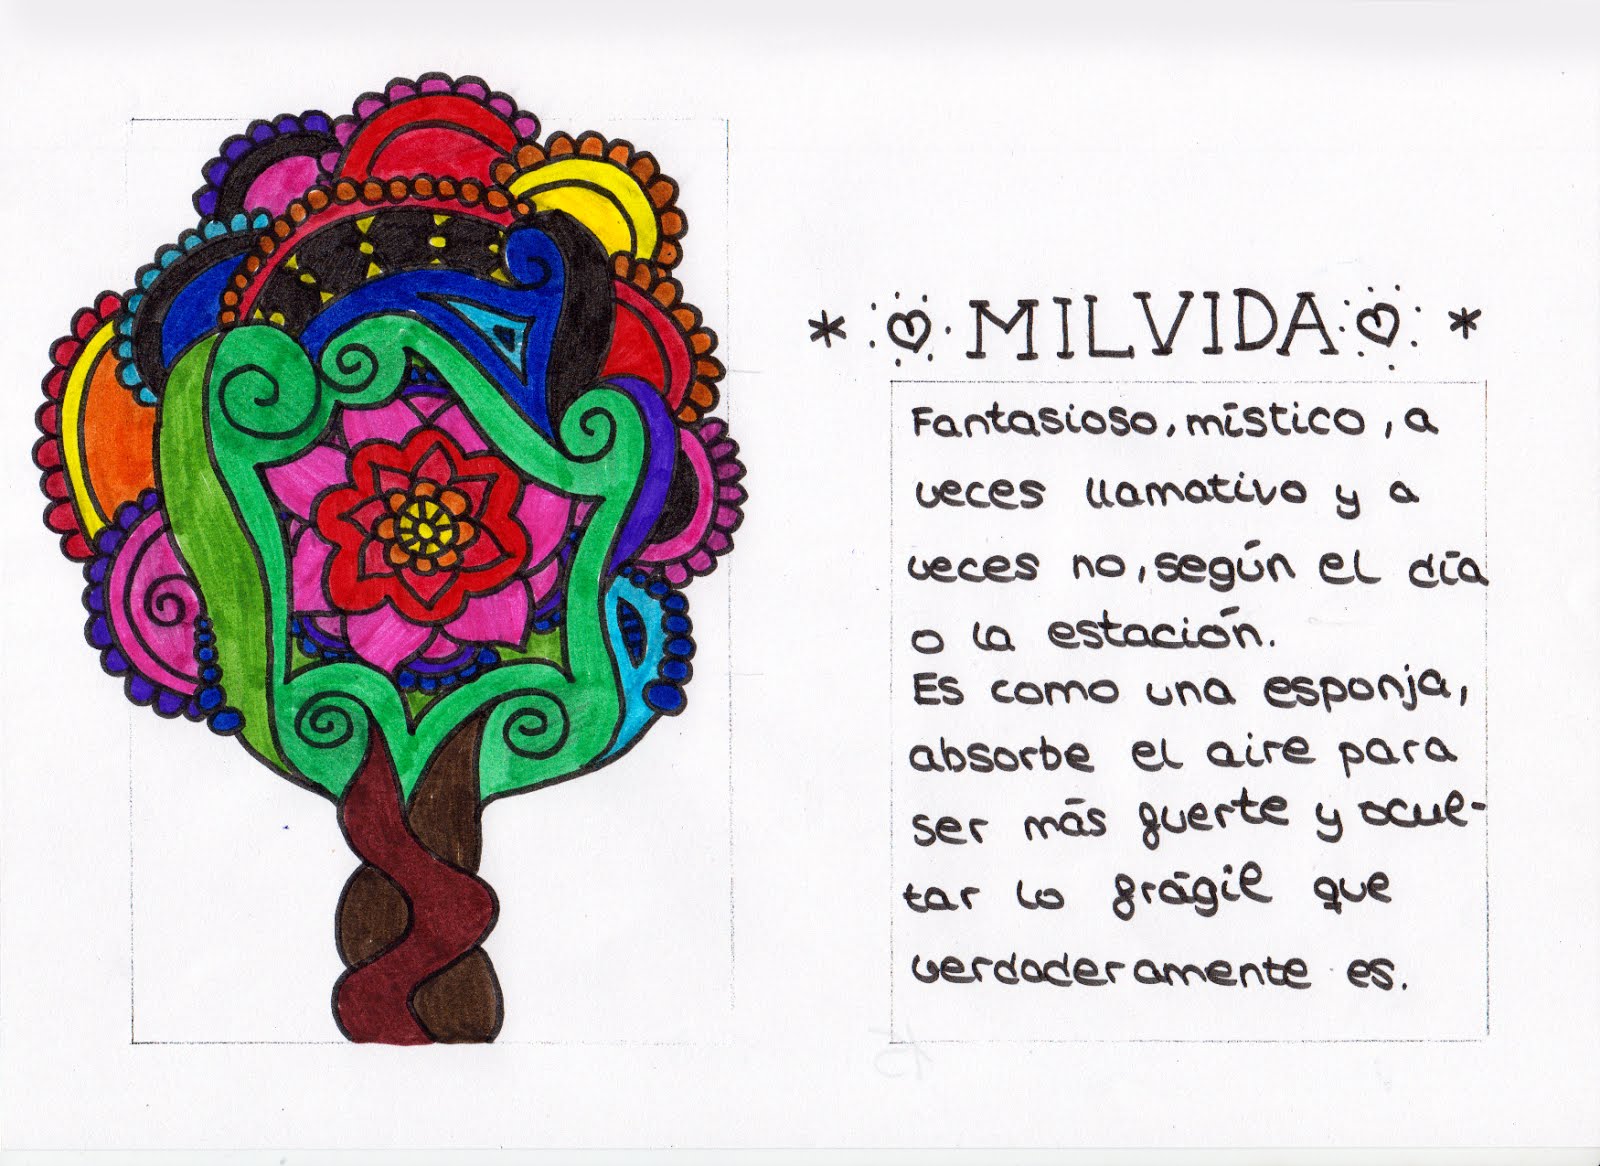 * ♡ MILVIDA ♡ *
Fantasioso, místico, a
veces llamativo y a
veces no, según el día
o la estación.
Es como una esponja,
absorbe el aire para
ser más fuerte y ocul-
tar lo frágil que
verdaderamente es.